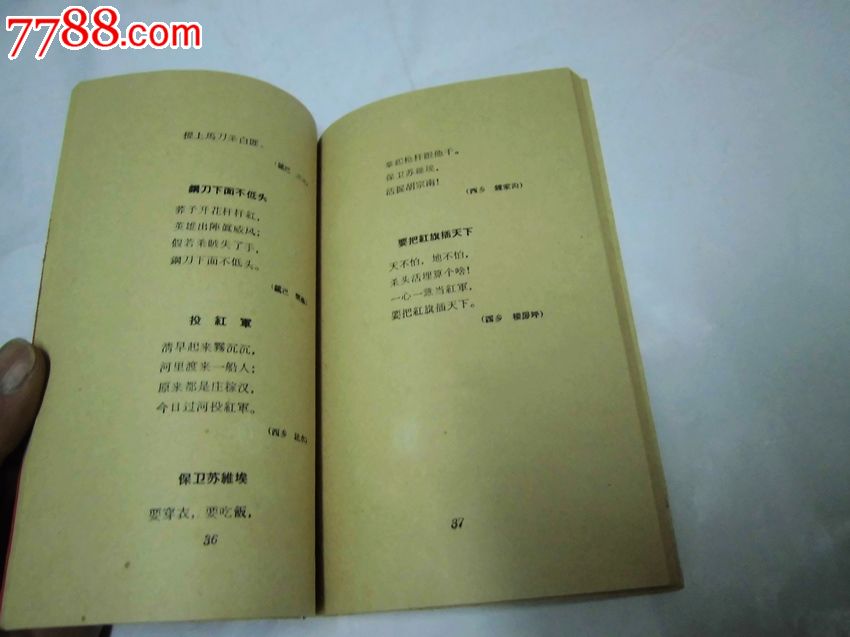 7788.com
提上馬刀杀白匪。
(鎭巴
鋼刀下面不低头
荞子开花杆杆紅，
英雄出陣眞威风；
假若杀敌失了手，
鋼刀下面不低头。
(鎭巴
投紅軍
清早起来霧沉沉，
河里渡来一船人；
原来都是庄稼汉，
今日过河投紅軍。
(西乡
保卫苏維埃
要穿衣，要吃飯，
36
拿起枪杆跟他干。
保卫苏維埃，
活捉胡宗南！
(西乡 鍾家沟)
要把紅旗插天下
天不怕，地不怕，
杀头活埋算个啥！
一心一意当紅軍，
要把紅旗插天下。
(西乡 楼房坪)
37